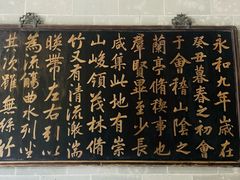 永和九年歲在
癸丑暮春之初會
于會稽山陰之
蘭亭脩禊事也
群賢畢至少長
咸集此地有崇
山峻領茂林脩
竹又有清流激湍
暎帶左右引以
為流觴曲水列坐
其次雖無絲竹